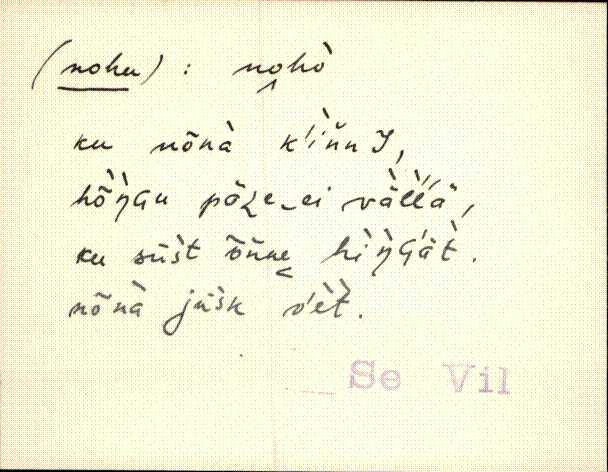 (nohu) : nohò
ku nõnà k'ìnnI,
hõ̀ŋGu põle_ei vällä,
ku sūst õnne hìŋGät.
nõnà jusk vèt.
Se Vil